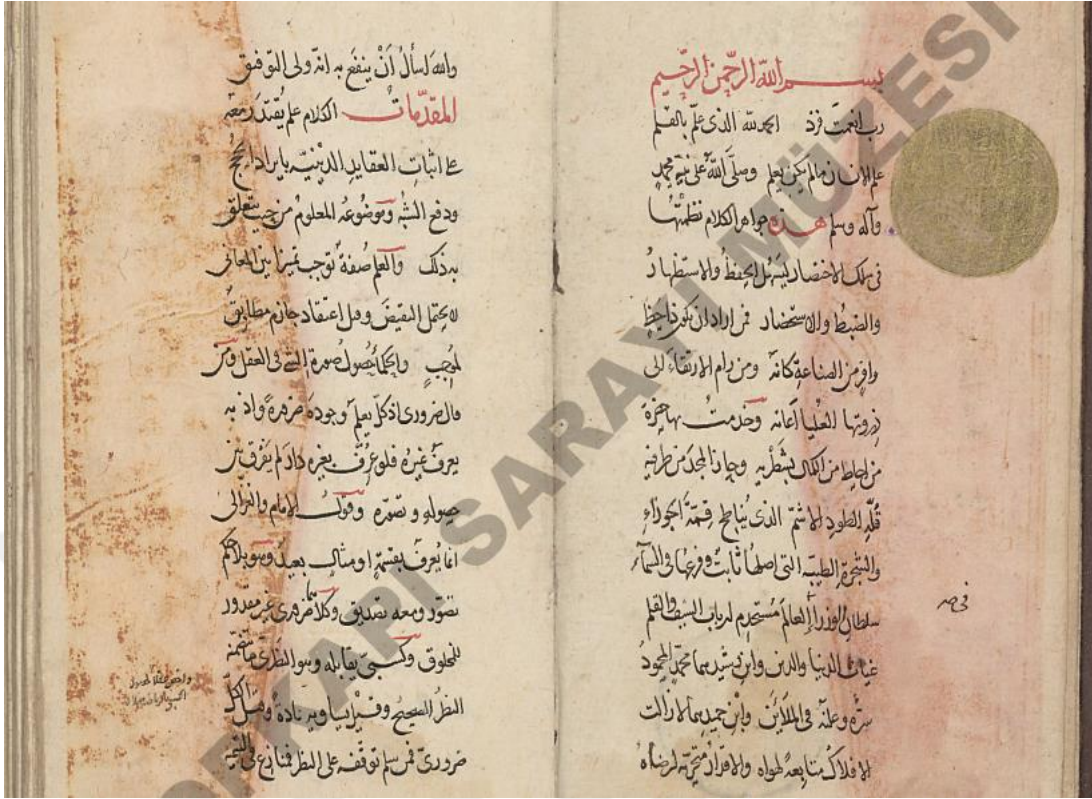 بسم الله الرحمن الرحيم
رب انعمت فزد الحمد لله الذى علم بالقلم
علم الانسان مالم يكن يعلم وصلى الله على نبيه محمد
وآله وسلم هذه جواهر الكلام نظمتها
فى سلك الاختصار ليسهل الحفظ والاستظهار
والضبط والاستحضار فمن اراد ان يكون ذا حظ
وافر من الصناعة كفاه ومن رام الارتقاء الى
ذروتها العليا اعانه وخدمت بها حضرة
من احاط من الكمال بشطريه وحاز المجد من طرفيه
قلة الطود الاشم الذى يناطح قمة الجوزاء
والشجرة الطيبة التى اصلها ثابت وفرعها فى السماء
سلطان الوزراء العالم مستخدم ارباب السيف والقلم
غياث الدنيا والدين وابن رشيدهما محمد المحمود
سره وعلنه فى الملأين وابن حميدهما لا زالت
الافلاك متابعة لهواه والاقدار متحرية لرضاه
والله اسأل أن ينفع به انه ولى التوفيق
المقدمات الكلام علم يقتدر معه
على اثبات العقايد الدينية بايراد الحجج
ودفع الشبه وموضوعه المعلوم من حيث يتعلق
به ذلك والعلم صفة توجب تميزا بين المعانى
لا يحتمل النقيض وقيل اعتقاد جازم مطابق
لموجب والحكماء حصول صورة الشئ فى العقل ومن
قال ضرورى اذ كل يعلم وجوده ضرورة واذ به
يعرف غيره فلو عرف بغيره دار لم يفرق بين
حصوله وتصوره وقول الامام والغزالى
انما يعرف بقسمة او مثال بعيد وهو بلا حكم
تصور ومعه تصديق وكلاهما ضرورى غير مقدور
للمخلوق وكسبى يقابله وهو النظرى ما تضمنه
النظر الصحيح وقيل
ضرورى فمن سلم توقفه على النظر فمنازع فى التسمية
TOPKAPI SARAYI MÜZESİ